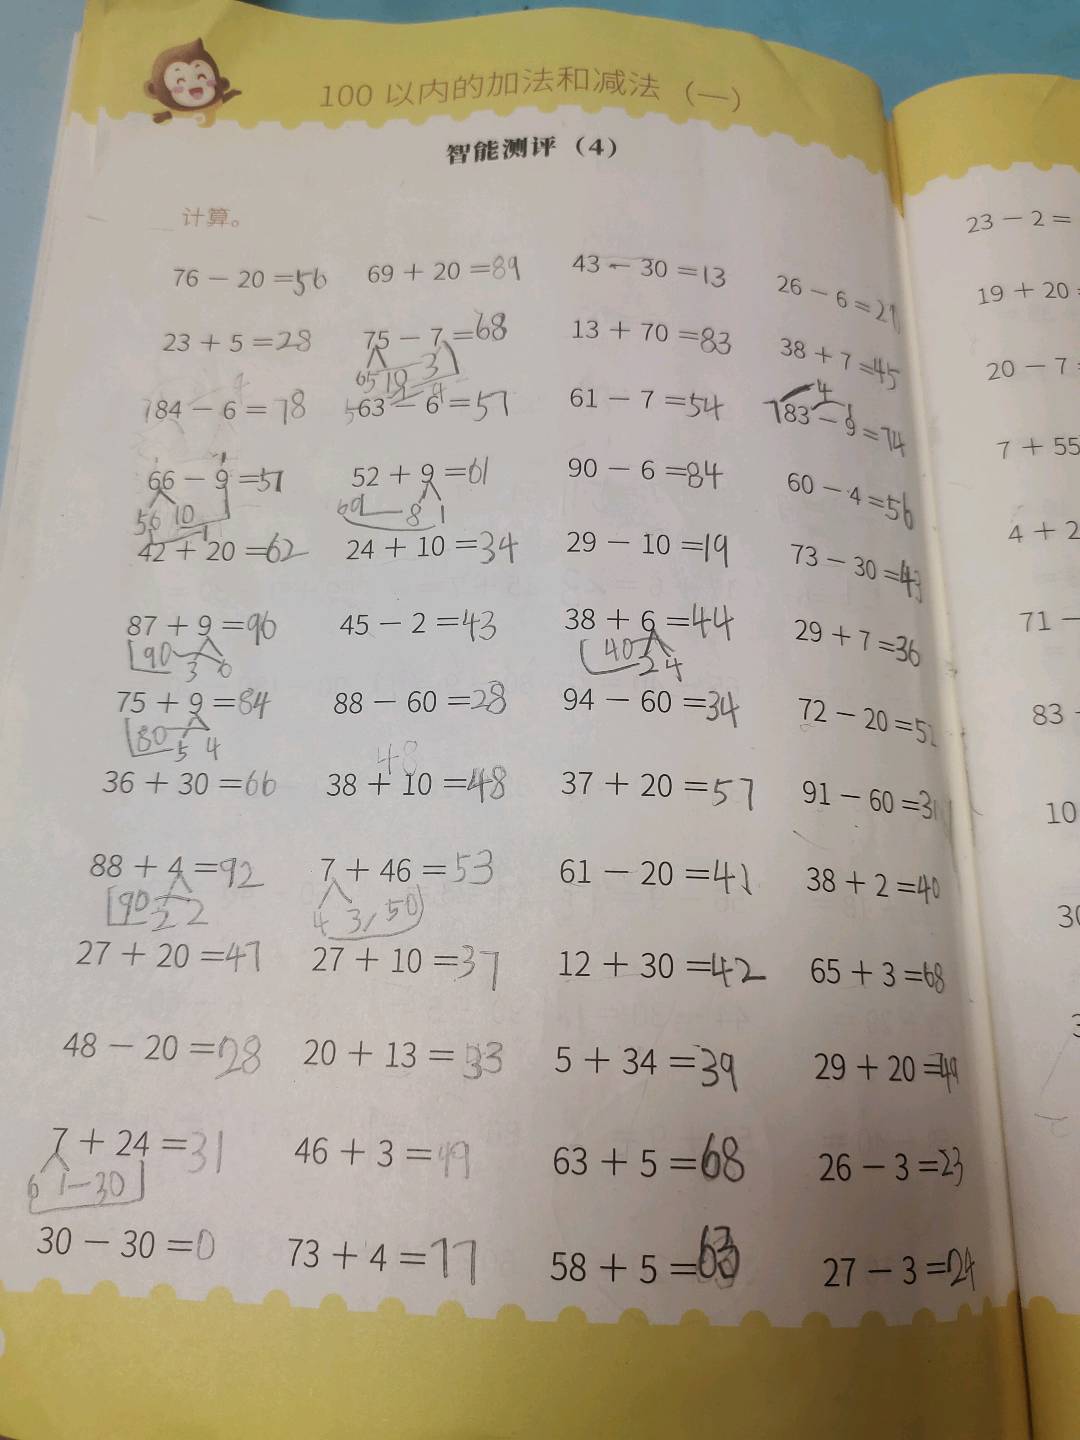 100 以内的加法和减法（一）
智能测评（4）
计算。
76 − 20 =56 69 + 20 =89 43 − 30 =13 26 − 6 =21
23 + 5 =28 75 − 7 =68 13 + 70 =83 38 + 7 =45
65 10 3
784 − 6 = 78 563 − 6 =57 61 − 7 =54 4 783 − 9 =74
66 − 9 =57 52 + 9 =61 90 − 6 =84 60 − 4 =56
56 10 1 60 8 1
42 + 20 =62 24 + 10 =34 29 − 10 =19 73 − 30 =43
87 + 9 =96 45 − 2 =43 38 + 6 =44 29 + 7 =36
90 3 6 40 2 4
75 + 9 =84 88 − 60 =28 94 − 60 =34 72 − 20 =52
80 5 4
48
36 + 30 =66 38 + 10 =48 37 + 20 =57 91 − 60 =31
88 + 4 =92 7 + 46 =53 61 − 20 =41 38 + 2 =40
90 2 2 4 3 50
27 + 20 =47 27 + 10 =37 12 + 30 =42 65 + 3 =68
48 − 20 =28 20 + 13 =33 5 + 34 =39 29 + 20 =49
7 + 24 =31 46 + 3 =49 63 + 5 =68 26 − 3 =23
6 1 30
30 − 30 =0 73 + 4 =77 58 + 5 =63 27 − 3 =24
23 − 2 =
19 + 20
20 − 7
7 + 55
4 + 2
71 −
83
10
30